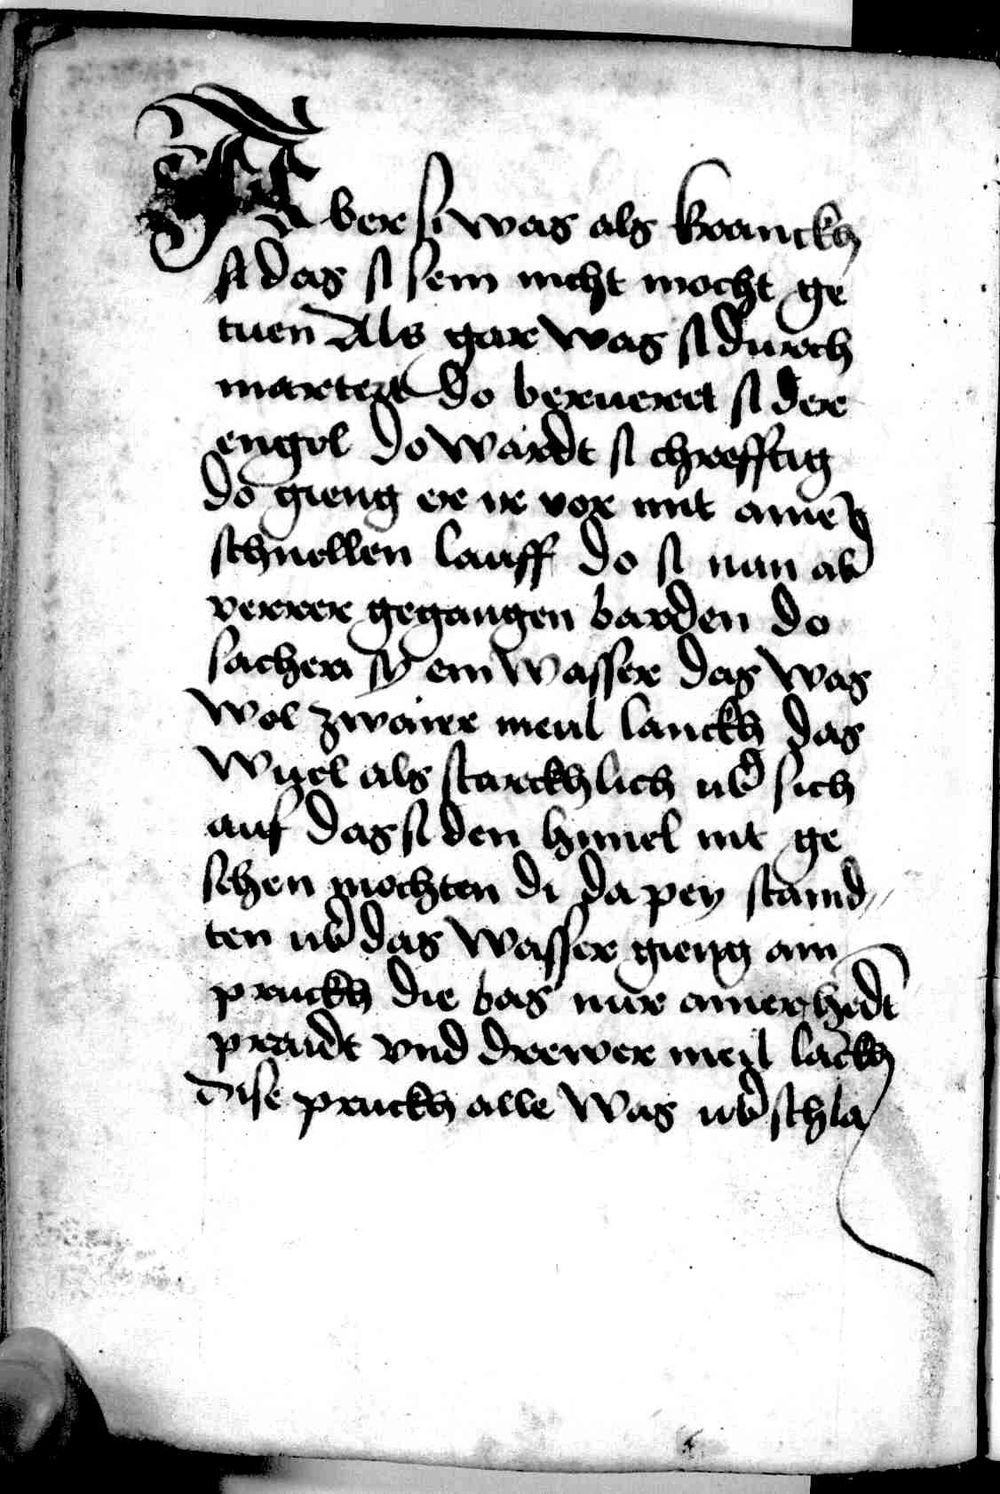 Aber si was als kranckh
si das si sein nicht mocht ge
tuen Als gar was si durch
martert do berueret si der
engel do wardt si chrefftig
do gieng er ir vor mit ainem
schnellen lauff do si nun ab̄
verrer gegangen warden do
sachen sy ein wasser das was
wol zwaier meil lanckh das
wuel als starckhlich ub̄ sich
auf das si den himel nit ge
sehen mochten di da pey stand
ten ub̄ das wasser gieng ain
pruckh die bas nur ainer hedt
praidt vnd drewer meil lāckh
dise pruckh alle was ub̄schla